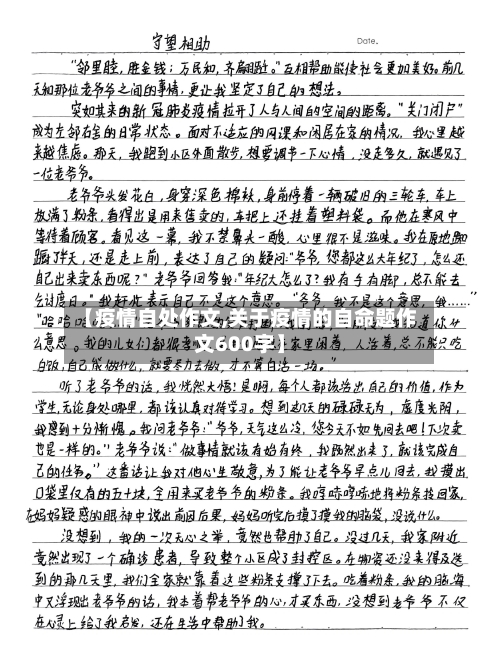 守望相助
Date.
“邻里睦,胜金钱;万民和,齐 。”互相帮助能使社会更加美好。前几
天和那位老爷爷之间的事情,更让我坚定了自己的想法。
突如其来的新冠肺炎疫情拉开了人与人间的空间的距离。“关门闭户”
成为左邻右舍的日常状态。面对不适应的网课和闲居在家的情况,我心里越
来越焦虑。那天,我跑到小区外面散步,想要调节一下心情,没走多久,就遇见了
一位老爷爷。
老爷爷头发花白,身穿深色棉袄,身前停着一辆破旧的三轮车,车上
放满了粉条,看得出是用来售卖的,车把上还挂着塑料袋。而他在寒风中
等待着顾客。看见这一幕,我不禁鼻头一酸,心里很不是滋味。我在原地踟
蹰半天,还是走上前,表达了自己的疑问:“爷爷,您都这么大年纪了,怎么还
自己出来卖东西呢?”老爷爷回答我:“年纪大怎么了?我有手有脚,总不能去
乞讨度日。”我赶忙表示自己不是这个意思。“爷爷,我不是这个意思,我……”
“哈哈
【疫情自处作文,关于疫情的自命题作
文600字】
道你什
么意思。我的儿女们都很 家里闲着,人活着,总不能只吃
白饭,自己能做什么,就要尽力去做,才不算白活一场。”
听了老爷爷的话,我恍然大悟!是啊,每个人都该活出自己的价值,作为
学生,无论身处哪里,都该认真对待学习。想到过几天的碌碌无为,虚度光阴,
我感到十分惭愧。我问老爷爷:“爷爷,天气这么冷,您今天不如先回去吧!下次卖
也是一样的。”老爷爷说:“做事情就该有始有终,我既然出来了,就该完成自
己的任务。”这番话让我对他心生敬意,为了能让老爷爷早点儿回去,我摸出
口袋里仅有的五十块,全用来买老爷爷的粉条。我哼哧哼哧地将粉条拉回家,
在妈妈疑惑的眼神中说出前因后果,妈妈听完后摸了摸我的脑袋,没说什么。
没想到,我的一次无心之举,竟然也帮助了自己。没过几天,我家附近
竟然出现了一个确诊患者,导致整个小区成了封控区。在物资还没来得及送
到的那几天里,我们全家就靠着这些粉条支撑了下去。吃着粉条,我的脑海
中又浮现出老爷爷的话,我本着帮老爷爷的心,才买东西,没想到老爷爷不仅
在心灵上给了我启发,还在生活中帮助了我。